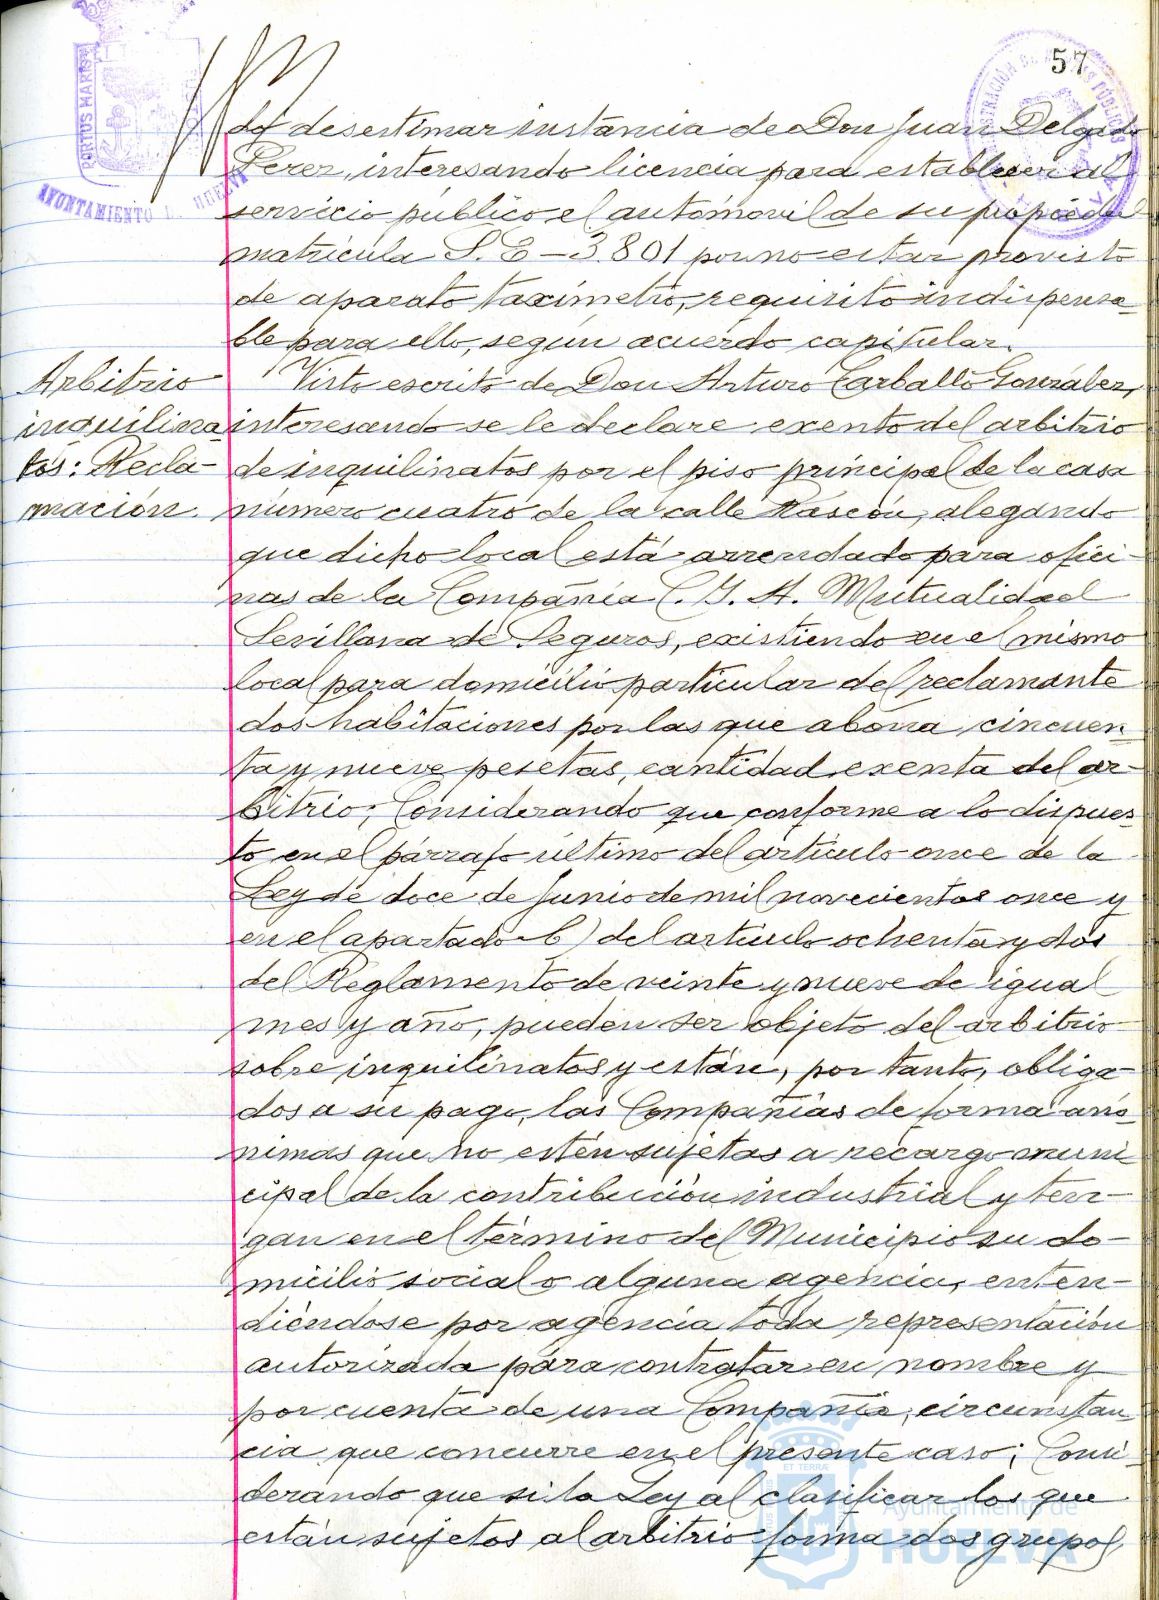 57
PORTUS MARIS
AYUNTAMIENTO DE HUELVA
do desestimar instancia de Don Juan Delgado
Perez, interesando licencia para establecer al
servicio público el automovil de su propiedad
matrícula S.E-3801 por no estar provisto
de aparato taxímetro, requisito indispensa-
ble para ello, según acuerdo capitular.
Arbitrio
inquilina-
tos: Recla-
mación.
Visto escrito de Don Arturo Carballo González,
interesando se le declare exento del arbitrio
de inquilinatos por el piso principal de la casa
número cuatro de la calle Rascón, alegando
que dicho local está arrendado para ofici-
nas de la Compañía C. Y. A. Mutualidad
Sevillana de Seguros, existiendo en el mismo
local para domicilio particular del reclamante
dos habitaciones por las que abona cincuen-
ta y nueve pesetas, cantidad exenta del ar-
bitrio; Considerando que conforme a lo dispues-
to en el párrafo último del artículo once de la
Ley de doce de Junio de mil novecientos once y
en el apartado b) del artículo ochenta y dos
del Reglamento de veinte y nueve de igual
mes y año, pueden ser objeto del arbitrio
sobre inquilinatos y están, por tanto, obliga-
dos a su pago, las Compañías de forma anó
nimas que no estén sujetas a recargo muni
cipal de la contribución industrial y ten-
gan en el término del Municipio su do-
micilio social o alguna agencia, enten-
diéndose por agencia toda representación
autorizada para contratar en nombre y
por cuenta de una Compañía, circunstan-
cia que concurre en el presente caso; Consi-
derando que si la Ley al clasificar los que
están sujetos al arbitrio forma dos grupos,
Ayuntamiento de
HUELVA